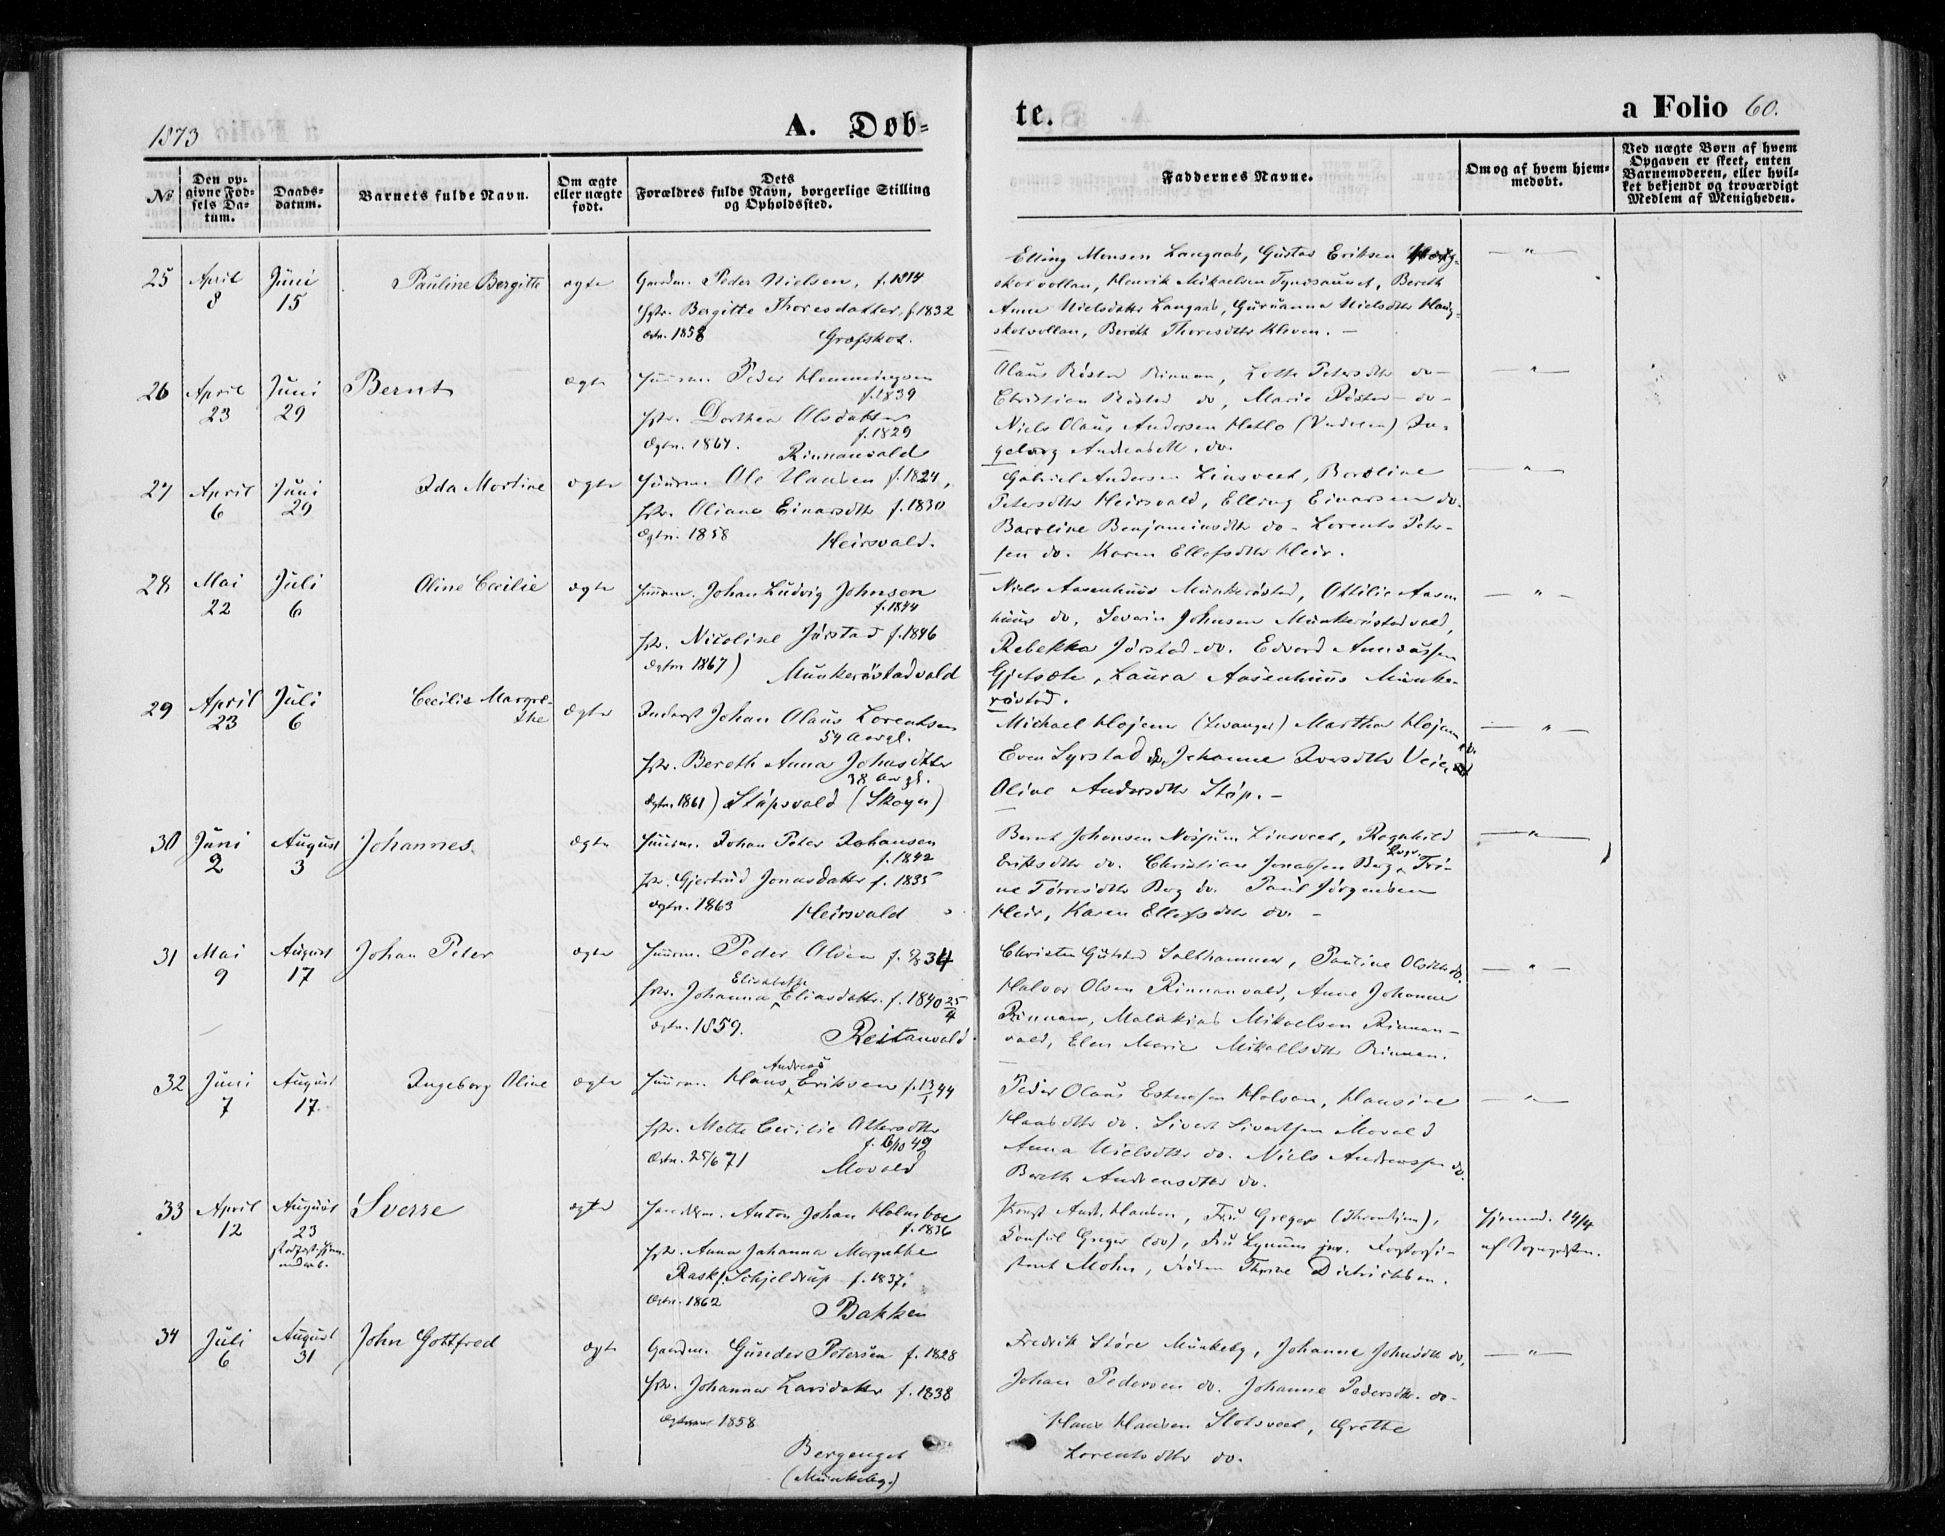 1873
A. Døb-
te.
a Folio 60.
No
Den op-
givne Fød-
sels Da-
tum.
Daabs-
datum.
Barnets fulde Navn.
Om ægte
eller uægte
født.
Dets
Forældres fulde Navn, borgerlige Stilling
og Opholdssted.
Faddernes Navne.
Om og af hvem hjem-
medøbt.
Ved uægte Børn af hvem
Opgaven er skeet, enten
Barnemoderen, eller hvil-
ket bekjendt og troværdigt
Medlem af Menigheden.
25 April 8 Juni 15 Pauline Bergitte ægte
Gaardm. Peder Nielsen, f. 1814
Hstr. Bergitte Thoresdatter, f. 1832
Ægtev. 1858 Grofskot.
Elling Monsen Langaas, Gustav Eriksen
skotvollan, Henrik Mikaelsen Bereth
Anna Nielsdatter Langaas, Guruanna Nielsdttr Haug-
skotvollan, Bereth Thoresdttr Kleven. —
— " —
26 April 23 Juni 29 Bernt ægte
Huusm. Peder Hemmingsen
f. 1839
Hstr. Dorthea Olsdatter
f. 1829
Ægtev. 1867. Rinnanvald
Olaus Røstad Rinnan, Lotte Petersdtr do —
Christian Røstad do, Marie Røstad — do —
Niels Olaus Andersen Hello (Vuderen) In-
geborg do.
— " —
27 April 6 Juni 29 Ida Martine ægte
Huusm. Ole Hansen f. 1824,
Hstr. Oliana Einarsdtr f. 1830
Ægtev. 1858 Heirsvald.
Gabriel Andersen Linsveet, Beroline
Petersdtr Heirsvald, Elling Einarsen do.
Baroline Benjaminsdtr do — Lorents Peter-
sen do. Karen Ellefsdtr Heir.
— " —
28 Mai 22 Juli 6 Oline Cecilie ægte
Huusm. Johan Ludvig Johnsen
f. 1844
Hstr. Nicoline Jørstad f. 1846
Ægtev 1867) Munkerøstadvald
Niels Aasenhuus Munkerøstad, Ottilie Aasen
huus do, Severin Johnsen Munkerøstadvald,
Rebekka Jørstad do. Edvard
Laura Aasenhuus Munke-
røstad.
— " —
29 April 23 Juli 6 Cecilie Margre-
the ægte
Inderst Johan Olaus Lorentsen
54 Aar gl.
Hstr. Bereth Anna Johnsdtr
38 Aar gl.
Ægtev. 1861) Støpsvald (Skogn)
Michael Hojem (Levanger) Martha Hojem do
Even Syrstad do, Johanne Iversdtr Veie,
Oline Andersdtr Støp. —
— " —
30 Juni 2 August 3 Johannes. ægte
Huusm. Johan Peter Johansen
f. 1842
Hstr. Gjertrud Jonasdatter f. 1835
Ægtev. 1863 Heirsvald
Bernt Johansen Linsveet, Ragnhild
Eriksdtr do. Christian Jonassen Berg, Tri-
ne Tørresdtr Berg do. Paul Jørgensen
Heir, Karen Ellefsdtr do. —
— " —
31 Mai 9 August 17 Johan Peter ægte
Huusm. Peder Olsen f. 1834
Hstr. Johanna Elisabeth Eliasdatter f. 1840 25/4
Ægtev. 1859. Reitanvald
Christen Salthammer, Pauline Olsdtr do.
Halvor Olsen Rinnanvald, Anne Johanne
Rinnan, Malakias Mikaelsen Rinnan-
vald, Elen Marie Mikaelsdtr Rinnan.
— " —
32 Juni 7 August 17. Ingeborg Oline ægte
Huusm. Hans Andreas Eriksen f. 13/1 44
Hstr. Mette Cecilie
f. 49
Ægtev. 25/6 71 Movald
Peder Olaus Holvan, Hansine
Hansdtr do. Sivert Sivertsen Movald
Anna Nielsdtr do. Niels Andreassen do.
Bereth Andreasdtr do.
— " —
33 April 12 August 23 Sverre ægte
Anton Johan Holmboe
f. 1836
Hstr. Anna Johanna Margrethe
Rask, Schjeldrup f. 1837.
Ægtev. 1862 Bakken
Hansen, Fru Greger (Throndhjem),
Konsul Greger (do), Fru Lynum jnr.
Mohn, Frøken Thrine Didrichsen.
Hjemmed. 14/4
af Sognepresten.
34 Juli 6 August 31 John Gottfred ægte
Gaardm. Gunder Petersen f. 1828
Hstr. Johanna Larsdatter f. 1838
Ægtev. 1858
Bergenget
(Munkeby)
Fredrik Støre Munkeby, Johanna Johnsdtr do,
Johan Pedersen do. Johanne Pedersdtr. do —
Hans Hansen Slotsveet, Grethe
Lorentsdtr do.
— " —